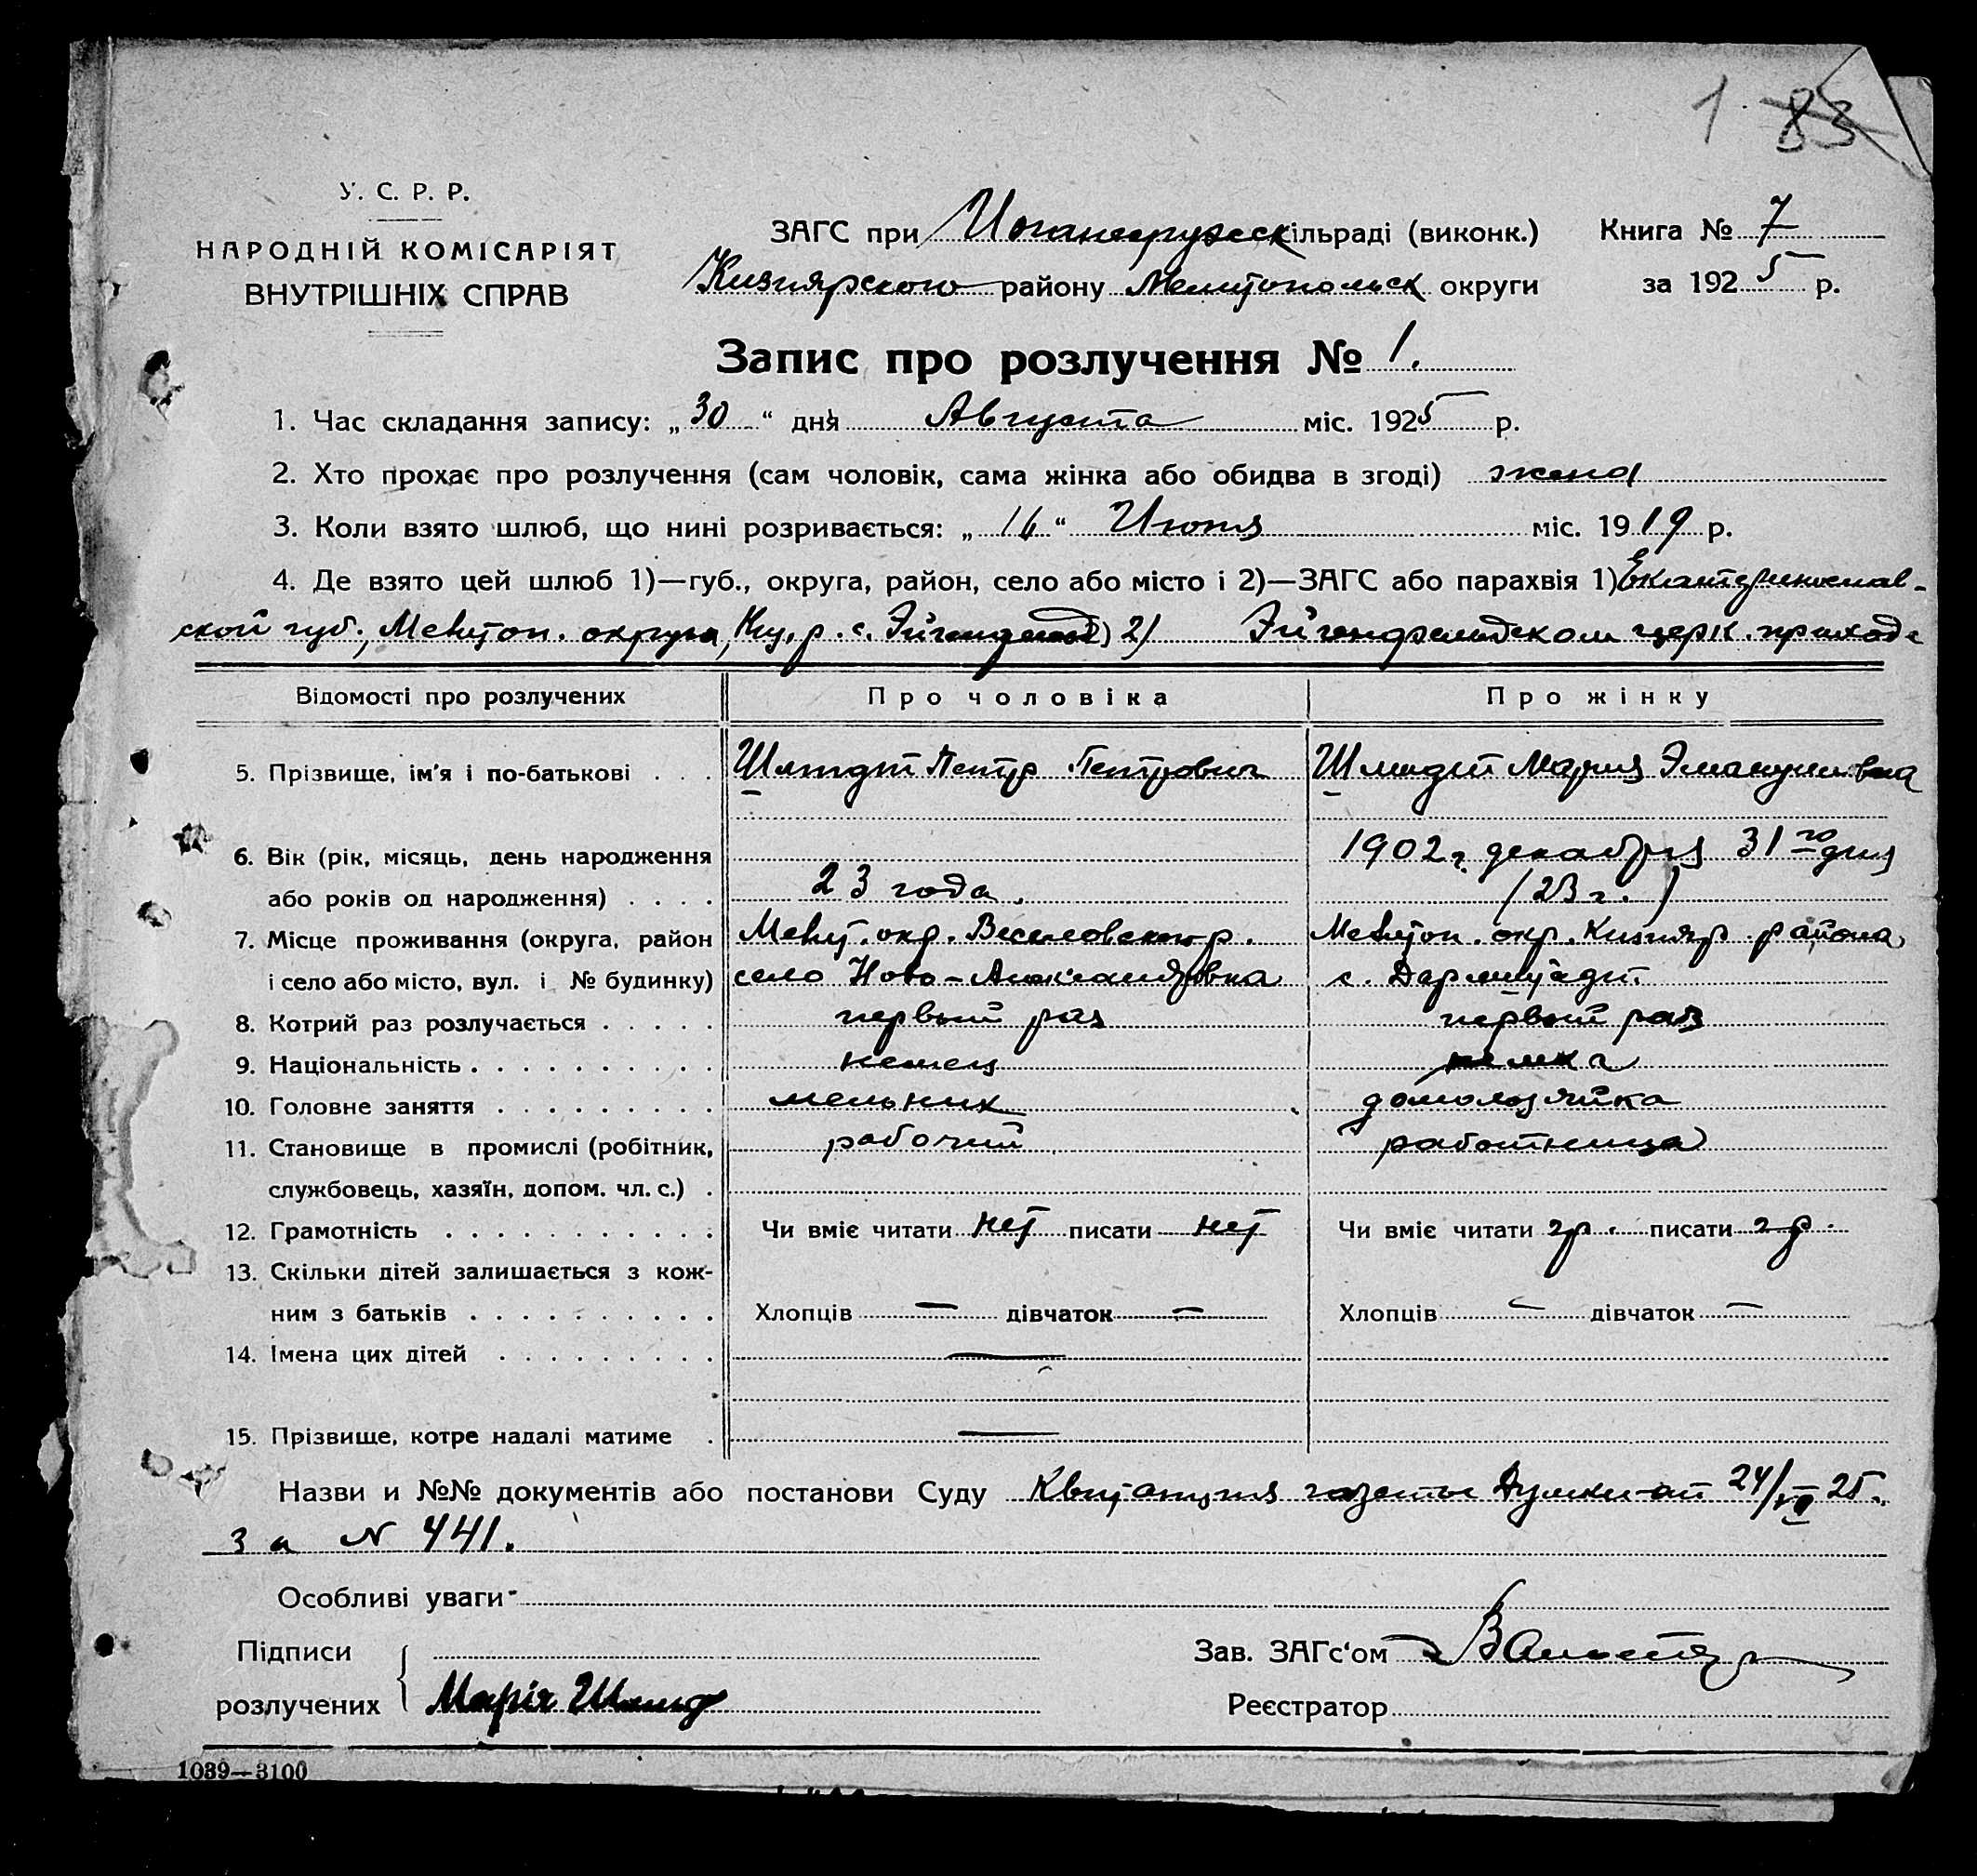 1. 83
У. С. Р. Р.
НАРОДНІЙ КОМІСАРІЯТ
ВНУТРІШНІХ СПРАВ
ЗАГС при Иоганесрузск ільраді (виконк.) Книга № 7
Кизиярского району Мелитопольск округи за 1925 р.
Запис про розлучення № 1.
1. Час складання запису: „30“ дня Августа міс. 1925 р.
2. Хто прохає про розлучення (сам чоловік, сама жінка або обидва в згоді) жена
3. Коли взято шлюб, що нині розривається: „16“ Июня міс. 1919 р.
4. Де взято цей шлюб 1)—губ., округа, район, село або місто і 2)—ЗАГС або парахвія 1) Екатеринослав-
ской губ., Мелитоп. округа, р. с. 2) Эйгенфельдском церк. приходе
Відомості про розлучених Про чоловіка Про жінку
5. Прізвище, ім'я і по-батькові . . . Шмидт Петр Петрович Шмидт Мария Эмануиловна
6. Вік (рік, місяць, день народження 1902 г. декабря 31го дня
або років од народження) . . . . 23 года. (23 г.)
7. Місце проживання (округа, район Мелит. окр. Веселовского р. Мелитоп. окр. Кизияр. района,
і село або місто, вул. і № будинку) село Ново-Александровка с. Дармштадт.
8. Котрий раз розлучається . . . . . первый раз первый раз
9. Національність . . . . . . . . . . немец немка
10. Головне заняття . . . . . . . . . мельник домохозяйка
11. Становище в промислі (робітник, рабочий работница
службовець, хазяїн, допом. чл. с.) .
12. Грамотність . . . . . . . . . . . Чи вміє читати нет писати нет Чи вміє читати гр. писати гр.
13. Скільки дітей залишається з кож-
ним з батьків . . . . . . . . . . Хлопців — дівчаток — Хлопців — дівчаток —
14. Імена цих дітей . . . . . . . . . —
15. Прізвище, котре надалі матиме . —
Назви и №№ документів або постанови Суду Квитанция газеты 24/VII 25.
за N 441.
Особливі уваги
Підписи Зав. ЗАГс'ом
розлучених Марія Шмидт Реєстратор
1039—3100